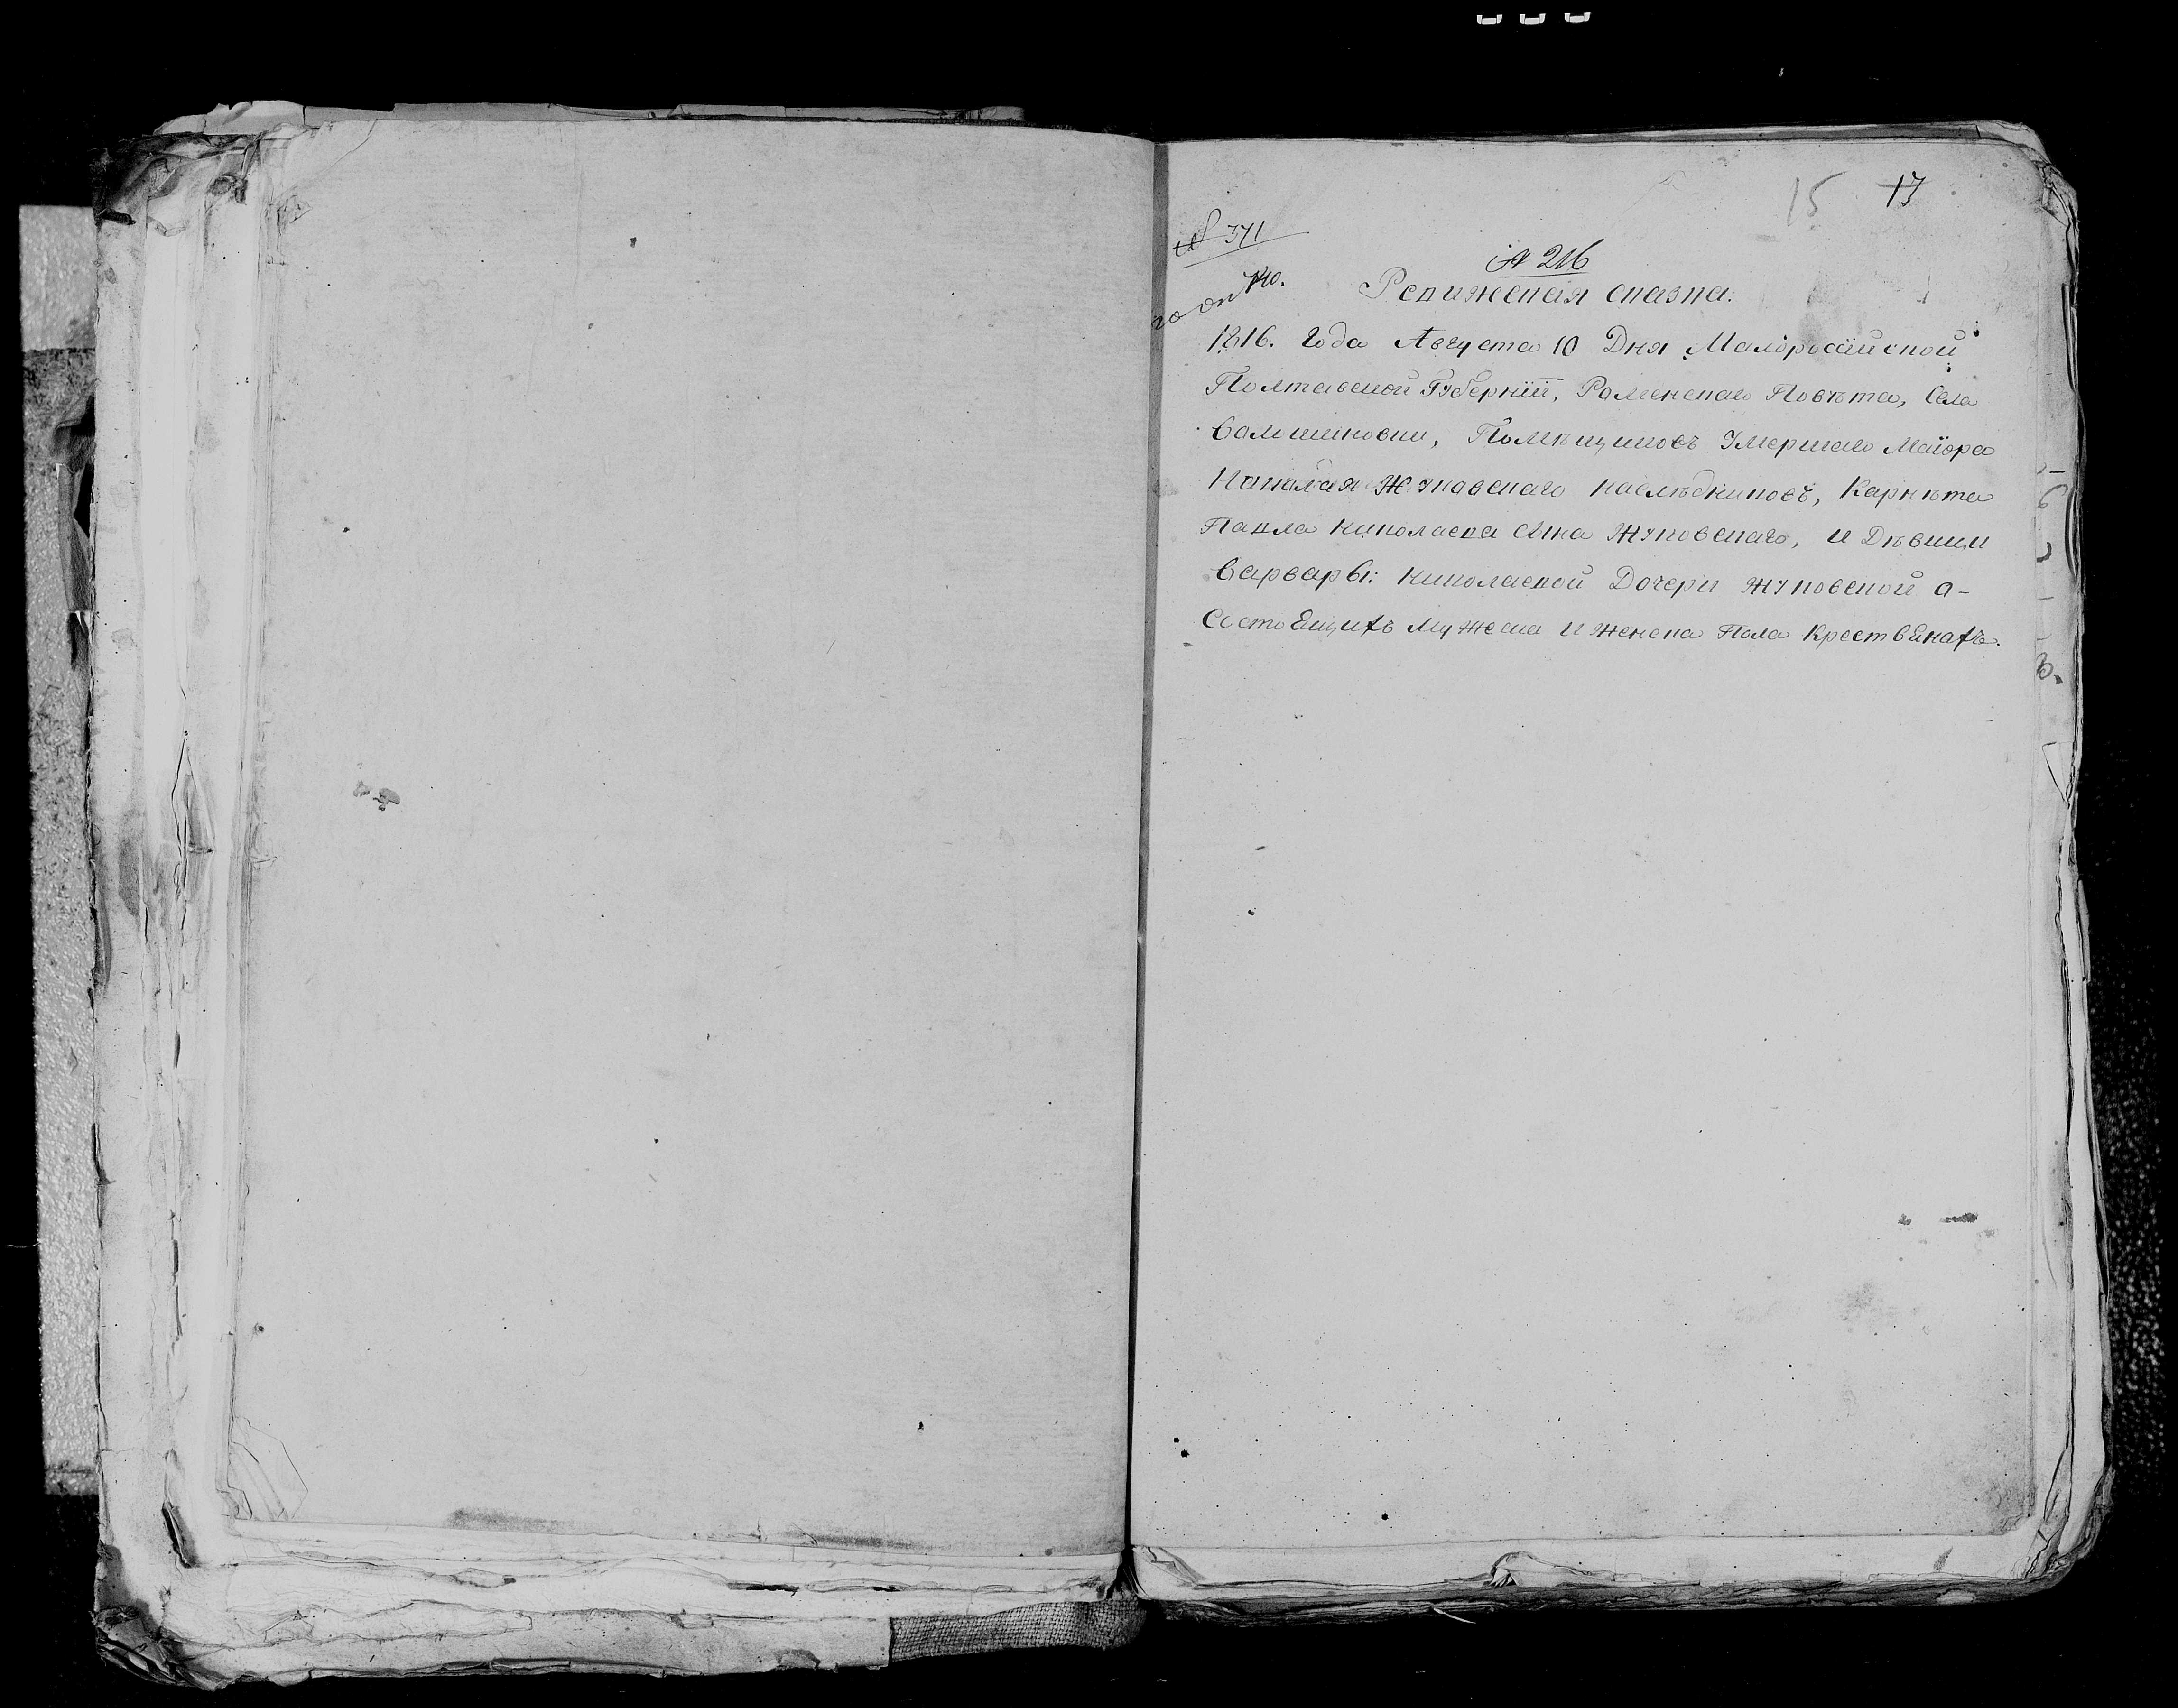 15 17
№ 371
№ 216
Ревижская сказка:
1816. Года Августа 10 Дня Малороссийской
Полтавской Губернии, Роменскаго Повѣта, Села
Волошиновки, Помѣщиковъ Умершаго Маиора
Николая Жуковскаго наслѣдниковъ, Карнѣта
Павла николаева сына Жуковскаго, и Дѣвицы
варвары: николаевой Дочери жуковской о-
Состоещихъ мужеска и женска Пола Крественахъ.